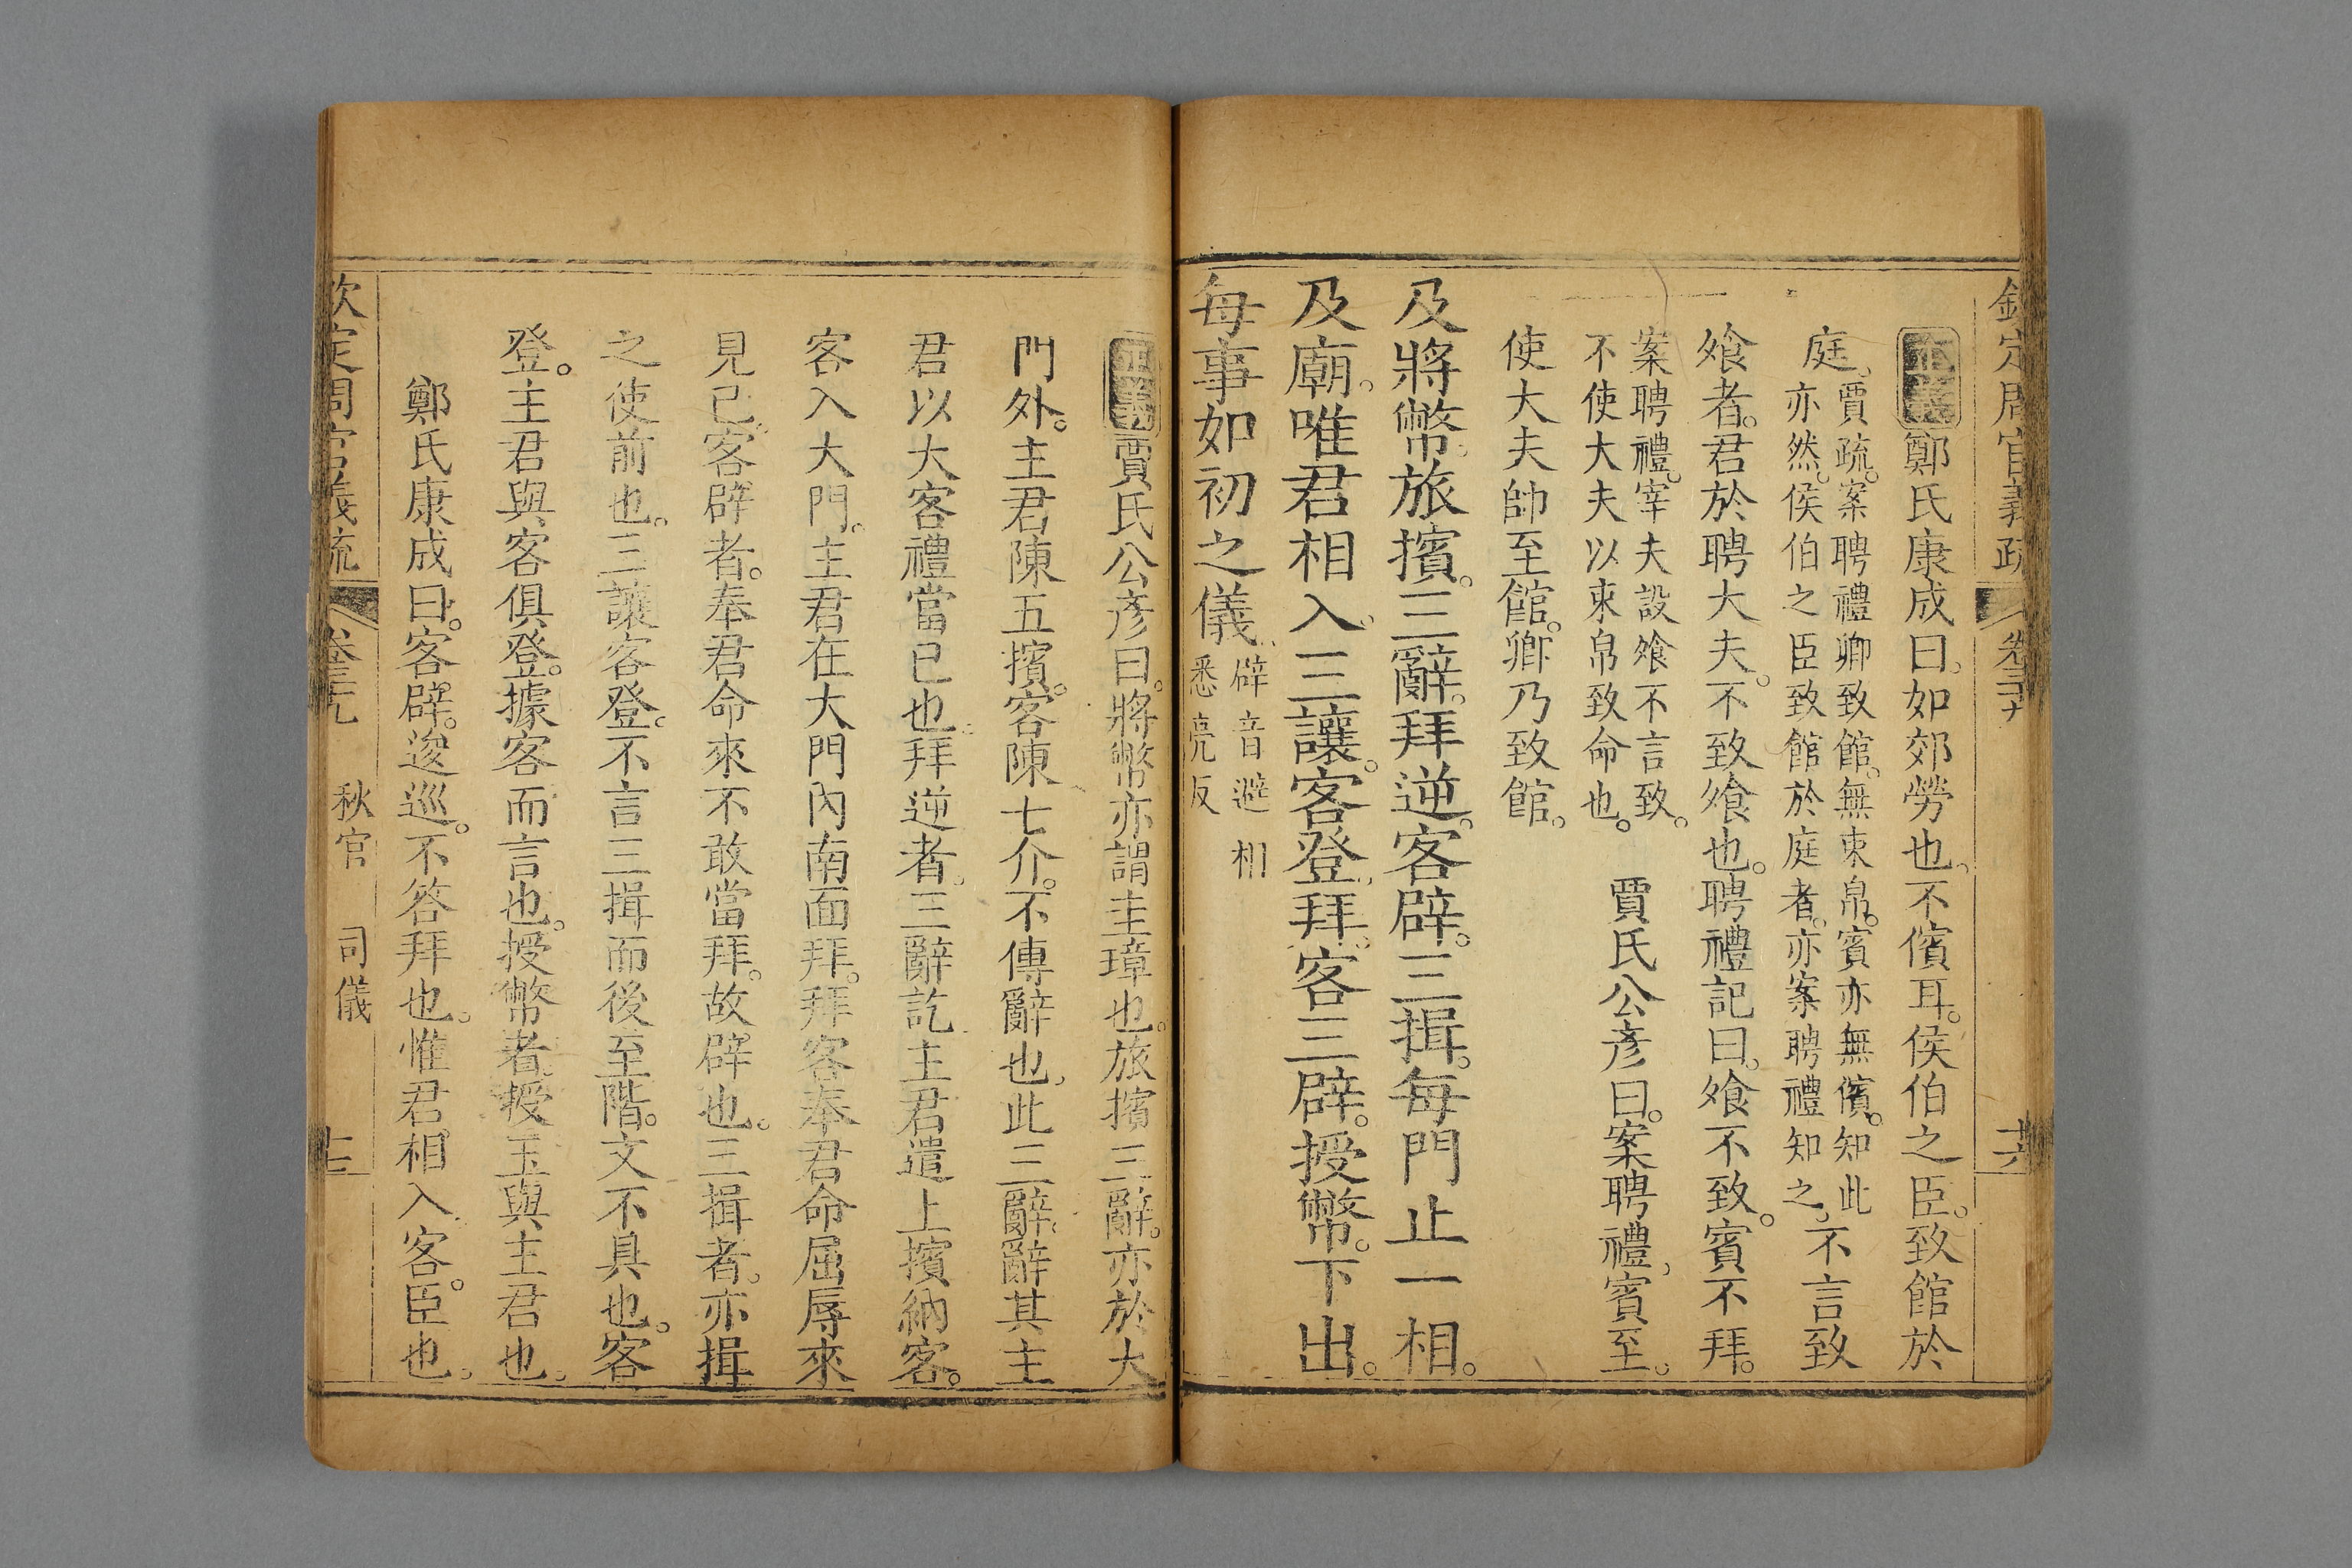 欽定周官義疏 卷三十九 十六
正義鄭氏康成曰如郊勞也不儐耳侯伯之臣致館於
庭賈疏案聘禮卿致館無束帛賓亦無儐知此
亦然侯伯之臣致館於庭者亦案聘禮知之不言致
飧者君於聘大夫不致飧也聘禮記曰飧不致賓不拜
案聘禮宰夫設飧不言致
不使大夫以束帛致命也 賈氏公彥曰案聘禮賓至
使大夫帥至館卿乃致館
及將幣旅擯三辭拜逆客辟三揖每門止一相
及廟唯君相入三讓客登拜客三辟授幣下出
每事如初之儀辟音避 相
悉亮反
正義賈氏公彥曰將幣亦謂圭璋也旅擯三辭亦於大
門外主君陳五擯客陳七介不傳辭也此三辭辭其主
君以大客禮當已也拜逆者三辭訖主君遣上擯納客
客入大門主君在大門內南面拜拜客奉君命屈辱來
見已客辟者奉君命來不敢當拜故辟也三揖者亦揖
之使前也三讓客登不言三揖而後至階文不具也客
登主君與客俱登據客而言也授幣者授玉與主君也
鄭氏康成曰客辟逡巡不答拜也惟君相入客臣也
欽定周官義疏 卷三十九 秋官 司儀 十七